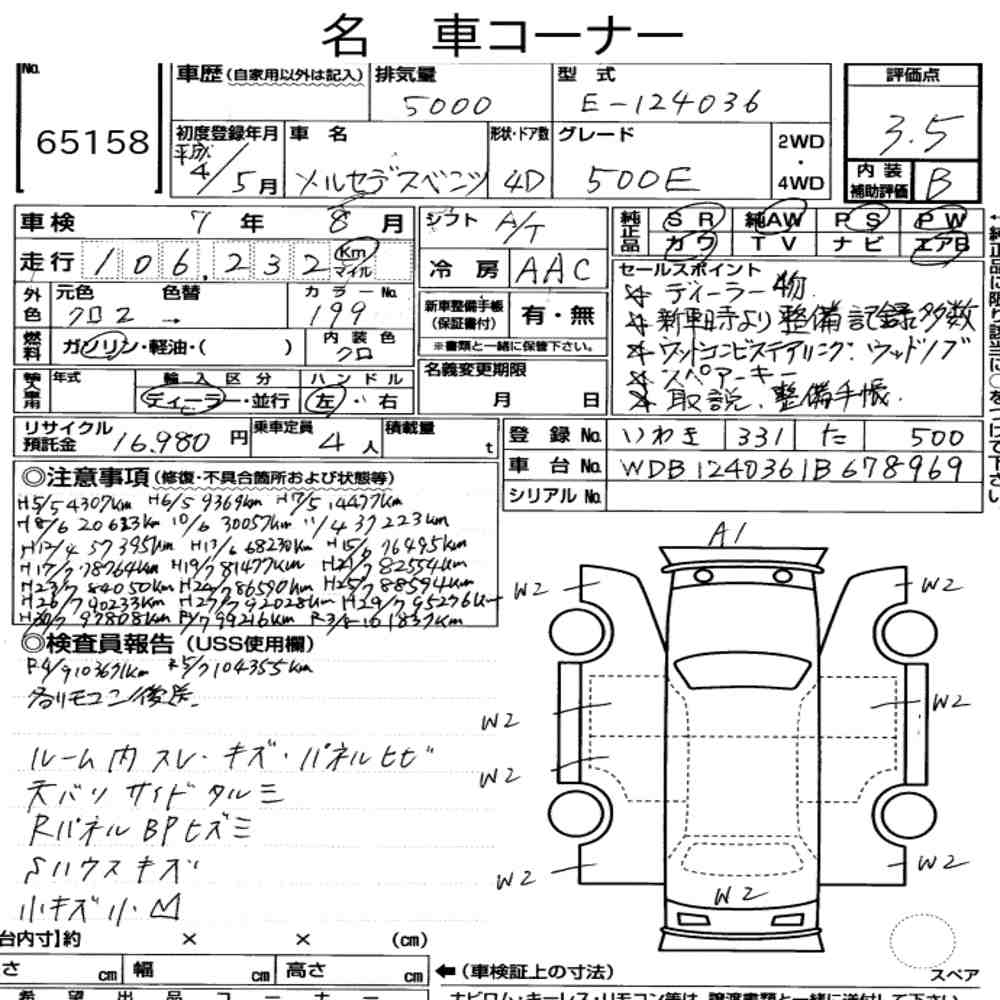 名 車コーナー
No.
65158
車歴(自家用以外は記入)
排気量
5000
型 式
E-124036
評価点
3.5
初度登録年月
平成
4/5月
車 名
メルセデスベンツ
形状・ドア数
4D
グレード
500E
2WD
・
4WD
内 装
補助評価
B
車検 7 年 8 月
シフト A/T
純正品
S R 純AW P S P W
カワ T V ナ ビ エアB
走行 106,232 Km マイル
冷 房 AAC
セールスポイント
☆ ディーラー物
☆ 新車時より整備記録多数
☆ ウッドコンビステアリング・ウッドノブ
☆ スペアーキー
☆ 取説、整備手帳.
外色 元色 色替 カラーNo.
クロ2 → 199
新車整備手帳
(保証書付)
有・無
※書類と一緒に保管下さい。
燃料 ガソリン・軽油・( )
内 装 色
クロ
年式
輸 入 区 分
ハ ン ド ル
ディーラー・並行
左・右
名義変更期限
月 日
リサイクル
預託金 16.980 円
乗車定員 4 人
積載量 t
登 録 No. いわき 331 た 500
車 台 No. WDB1240361B678969
シリアル No.
◎注意事項(修復・不具合箇所および状態等)
H5/5 4307km H6/5 9369km H7/5 14477km
H8/6 20613km 10/6 30057km 11/4 37223km
H12/4 57395km H13/6 68230km H15/6 76495km
H17/7 78764km H19/7 81477km H21/7 82554km
H23/7 84050km H24/7 86590km H25/7 88594km
H26/7 90233km H27/7 92028km H29/7 95276km
H30/7 97808km R1/7 99216km R3/8 101837km
◎検査員報告(USS使用欄)
R4/9 103671km R5/7 104355km
各リモコン後送
ルーム内 スレ・キズ・パネルヒビ
天バリ サイド タルミ
RパネルBPヒズミ
Sハウスキズ
小キズ小・凹
A1
W2
W2
W2
W2
W2
W2
W2
W2
台内寸】約 × × (cm)
さ cm 幅 cm 高さ cm
(車検証上の寸法)
スペア
希 望 出 品 コ ー ナ ー
ナビロム・キーレス・リモコン等は、譲渡書類と一緒に送付して下さい。